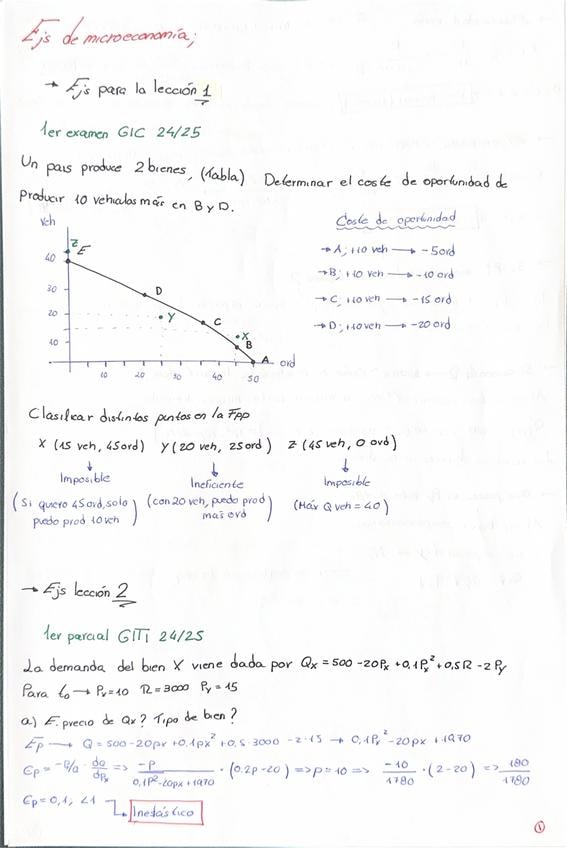 Ejs de microeconomía;
→ Ejs para la lección 1
1er examen GIC 24/25
Un pais produce 2 bienes, (Tabla) Determinar el coste de oportunidad de
Producir 10 vehiculos más en B y D.
Veh
Coste de oportunidad
→ A; +10 veh → -5ord
→ B; +10 veh → -10 ord
→ C; +10 veh → -15 ord
→ D; +10 veh → -20 ord
Z E
40
30 D
20 Y C
10 X B
A ord
10 20 30 40 50
Clasificar distintos puntos en la FPP
X (15 veh, 45ord) Y (20 veh, 25ord) Z (45 veh, 0 ord)
↓ ↓ ↓
Imposible Ineficiente Imposible
(Si quiero 45ord, solo puedo prod 10veh) (con 20 veh, puedo prod mas ord) (Máx Q veh = 40)
→ Ejs lección 2
1er parcial GITI 24/25
La demanda del bien X viene dada por Qx = 500 - 20Px + 0,1Px² + 0,5R - 2Py
Para to → Px = 10 R = 3000 Py = 15
a) E. precio de Qx? Tipo de bien?
Ep → Q = 500 - 20px + 0,1px² + 0,5·3000 - 2·15 → 0,1Px² - 20px + 1970
Ep = -P/Q · dQ/dPx => -P/(0,1P² - 20px + 1970) · (0.2p - 20) => p = 10 => -10/1780 · (2 - 20) => 180/1780
Ep = 0,1; <1 → Inelástico
1